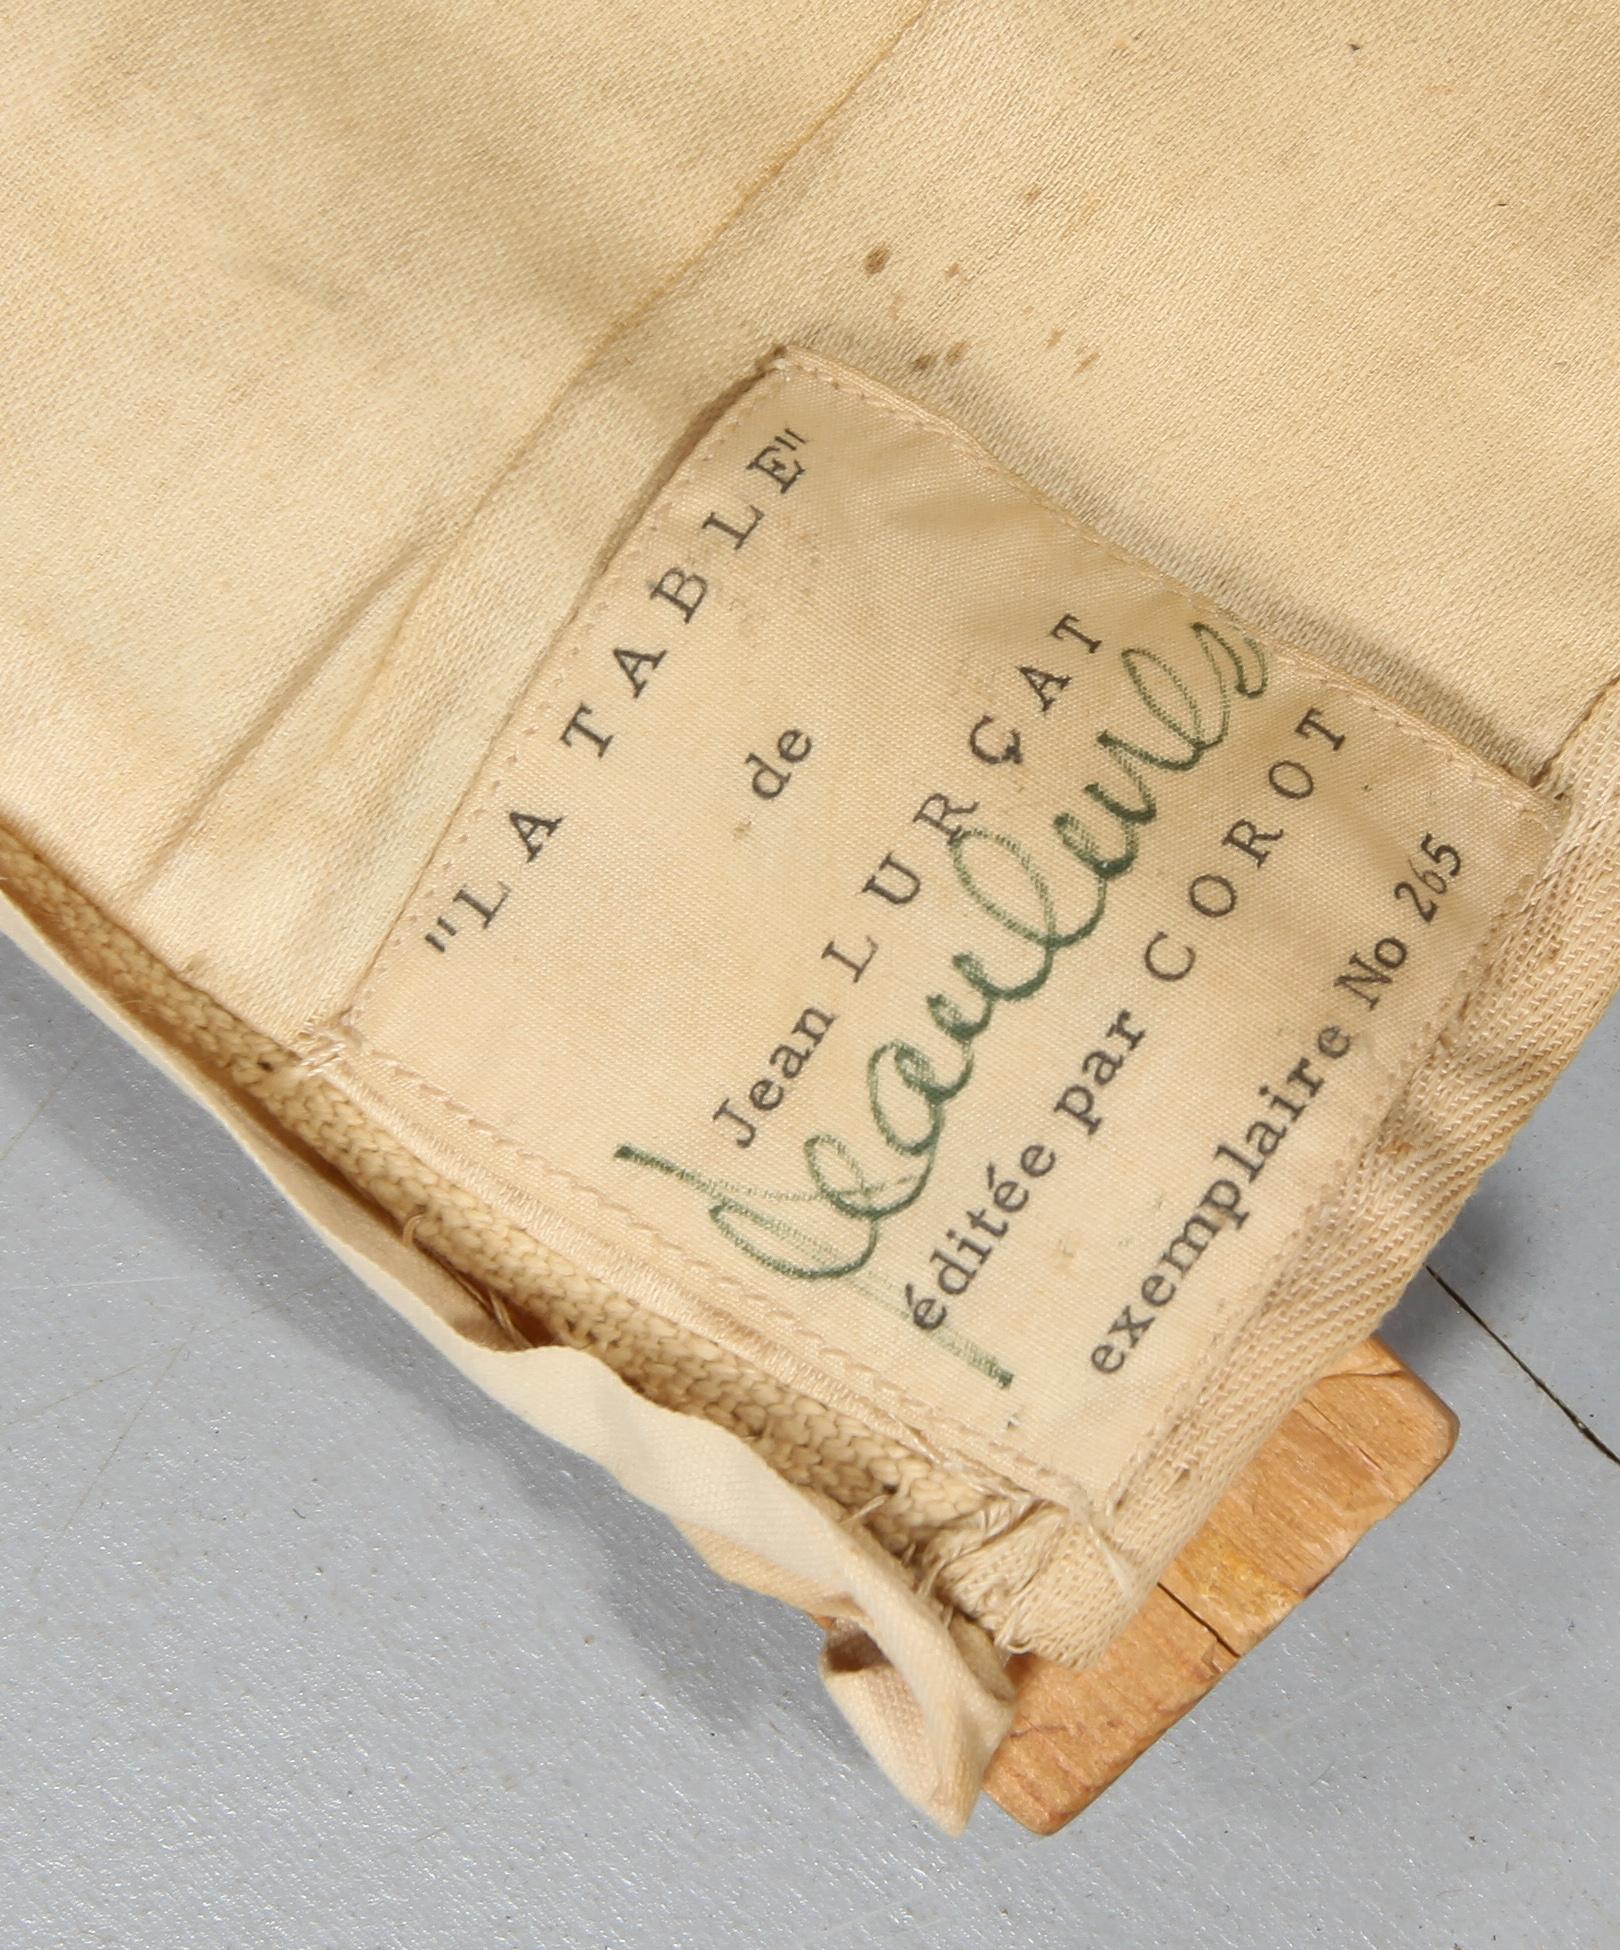 "LA TABLE"
de
Jean LURÇAT
Jean Lurçat
éditée par COROT
exemplaire No 265